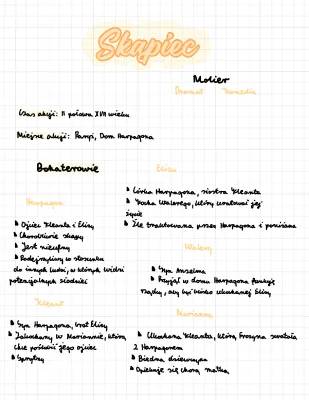 Skąpiec
Molier
Dramat Komedia
Czas akcji: II połowa XVII wieku
Miejsce akcji: Paryż, Dom Harpagona
Bohaterowie
Eliza
Córka Harpagona, siostra Kleanta
Kocha Walerego, który uratował jej
życie
Źle traktowana przez Harpagona i poniżana
Harpagon
Ojciec Kleanta i Elizy
Chorobliwie skąpy
Jest nieufny
Podejrzliwy w stosunku
do innych ludzi, w których widzi
potencjalnych złodziei
Walery
Syn Anzelma
Przyjął w domu Harpagona funkcję
rządcy, aby być blisko ukochanej Elizy
Kleant
Syn Harpagona, brat Elizy
Zakochany w Mariannie, którą
chce poślubić jego ojciec
Sprytny
Marianna
Ukochana Kleanta, którą Frozyna swatała
z Harpagonem
Biedna dziewczyna
Opiekuje się chorą matką